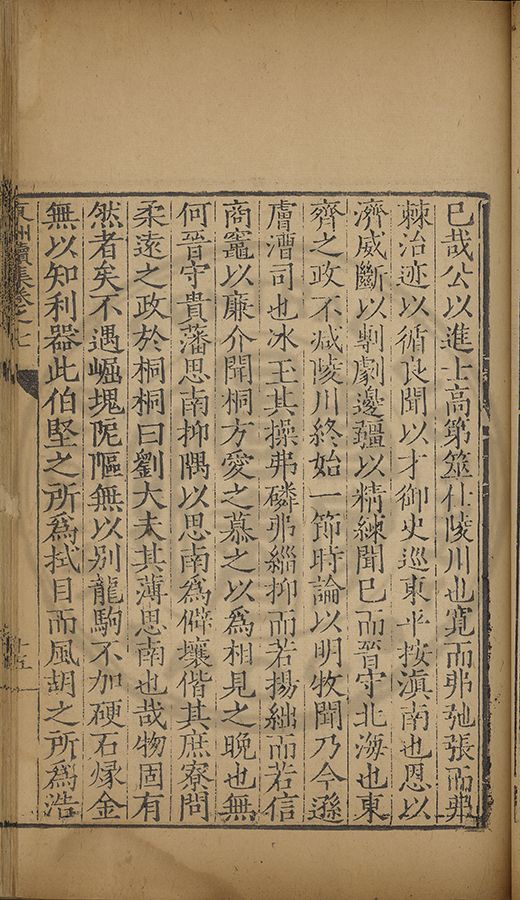 已哉公以進士高第筮仕陵川也寬而弗弛張而弗
棘治迹以循良聞以才御史巡東平按滇南也恩以
濟威斷以剸劇邊疆以精練聞已而晉守北海也東
齊之政不減陵川終始一節時論以明牧聞乃今遜
膚漕司也冰玉其操弗磷弗緇抑而若揚絀而若信
商竈以廉介聞桐方愛之慕之以爲相見之晚也無
何晉守貴藩思南抑隅以思南爲僻壤偕其庶寮問
柔遠之政於桐桐曰劉大夫其薄思南也哉物固有
然者矣不遇崛塊阸𨻳無以别龍駒不加硬石緣金
無以知利器此伯堅之所爲拭目而風胡之所爲浩
續集卷之七
十五